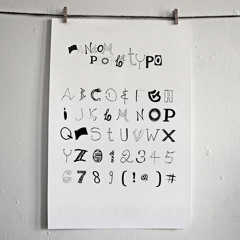 RANDOM
POLOTYPO
ABCDEFGH
iJKLMNOP
QRSTUVWX
YZ012345
6789(!@)#